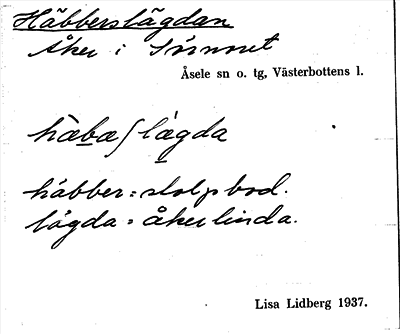 Häbberslägdan
Åker i Sörnoret
Åsele sn o. tg, Västerbottens l.
hæbæʃlägda
häbber = stolpbod.
lägda = åkerlinda.
Lisa Lidberg 1937.